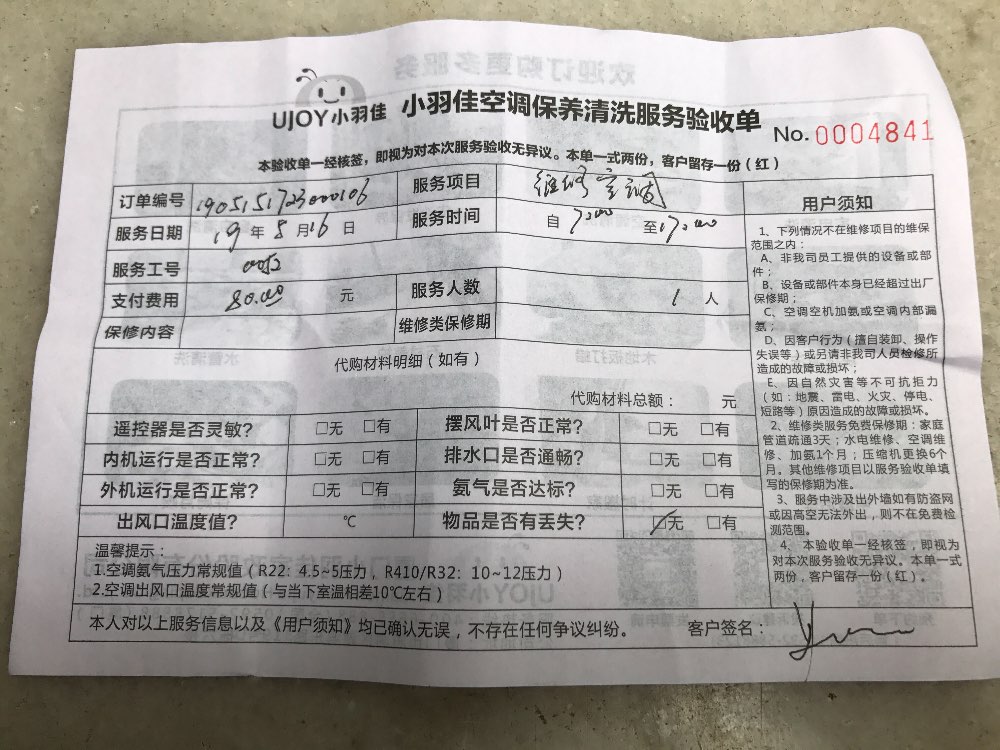 UJOY小羽佳 小羽佳空调保养清洗服务验收单 No.0004841
本验收单一经核签，即视为对本次服务验收无异议。本单一式两份，客户留存一份（红）
订单编号 190515172300106 服务项目 维修空调
服务日期 19年5月16日 服务时间 自 7:00 至17:00
服务工号
支付费用 80.00 元 服务人数 1 人
保修内容 维修类保修期
代购材料明细（如有）
代购材料总额： 元
遥控器是否灵敏? □无 □有 摆风叶是否正常? □无 □有
内机运行是否正常? □无 □有 排水口是否通畅? □无 □有
外机运行是否正常? □无 □有 氨气是否达标? □无 □有
出风口温度值? ℃ 物品是否有丢失? □无 □有
温馨提示：
1.空调氨气压力常规值（R22：4.5~5压力，R410/R32：10~12压力）
2.空调出风口温度常规值（与当下室温相差10℃左右）
本人对以上服务信息以及《用户须知》均已确认无误，不存在任何争议纠纷。 客户签名：
用户须知
1、下列情况不在维修项目的维保
范围之内：
A、非我司员工提供的设备或部
件；
B、设备或部件本身已经超过出厂
保修期；
C、空调空机加氨或空调内部漏
氨；
D、因客户行为（擅自装卸、操作
失误等）或另请非我司人员检修所
造成的故障或损坏；
E、因自然灾害等不可抗拒力
（如：地震、雷电、火灾、停电、
短路等）原因造成的故障或损坏。
2、维修类服务免费保修期：家庭
管道疏通3天；水电维修、空调维
修、加氨1个月；压缩机更换6个
月。其他维修项目以服务验收单填
写的保修期为准。
3、服务中涉及出外墙如有防盗网
或因高空无法外出，则不在免费检
测范围。
4、本验收单一经核签，即视为
对本次服务验收无异议。本单一式
两份，客户留存一份（红）。